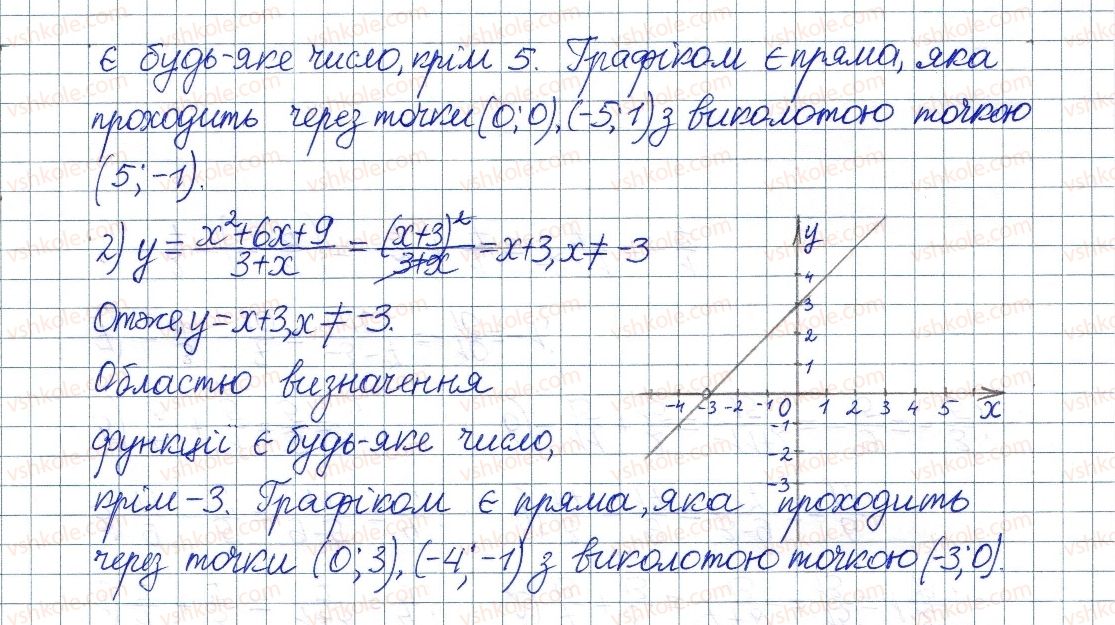 є будь-яке число, крім 5. Графіком є пряма, яка
проходить через точки (0; 0), (-5; 1) з виколотою точкою
(5; -1).
2) y = x²+6x+9 / 3+x = (x+3)² / 3+x = x+3, x ≠ -3
Отже, y = x+3, x ≠ -3.
Областю визначення
функції є будь-яке число,
крім -3. Графіком є пряма, яка проходить
через точки (0; 3), (-4; -1) з виколотою точкою (-3; 0).
y
4
3
2
1
-4 -3 -2 -1 0 1 2 3 4 5 x
-1
-2
-3
vshkole.com